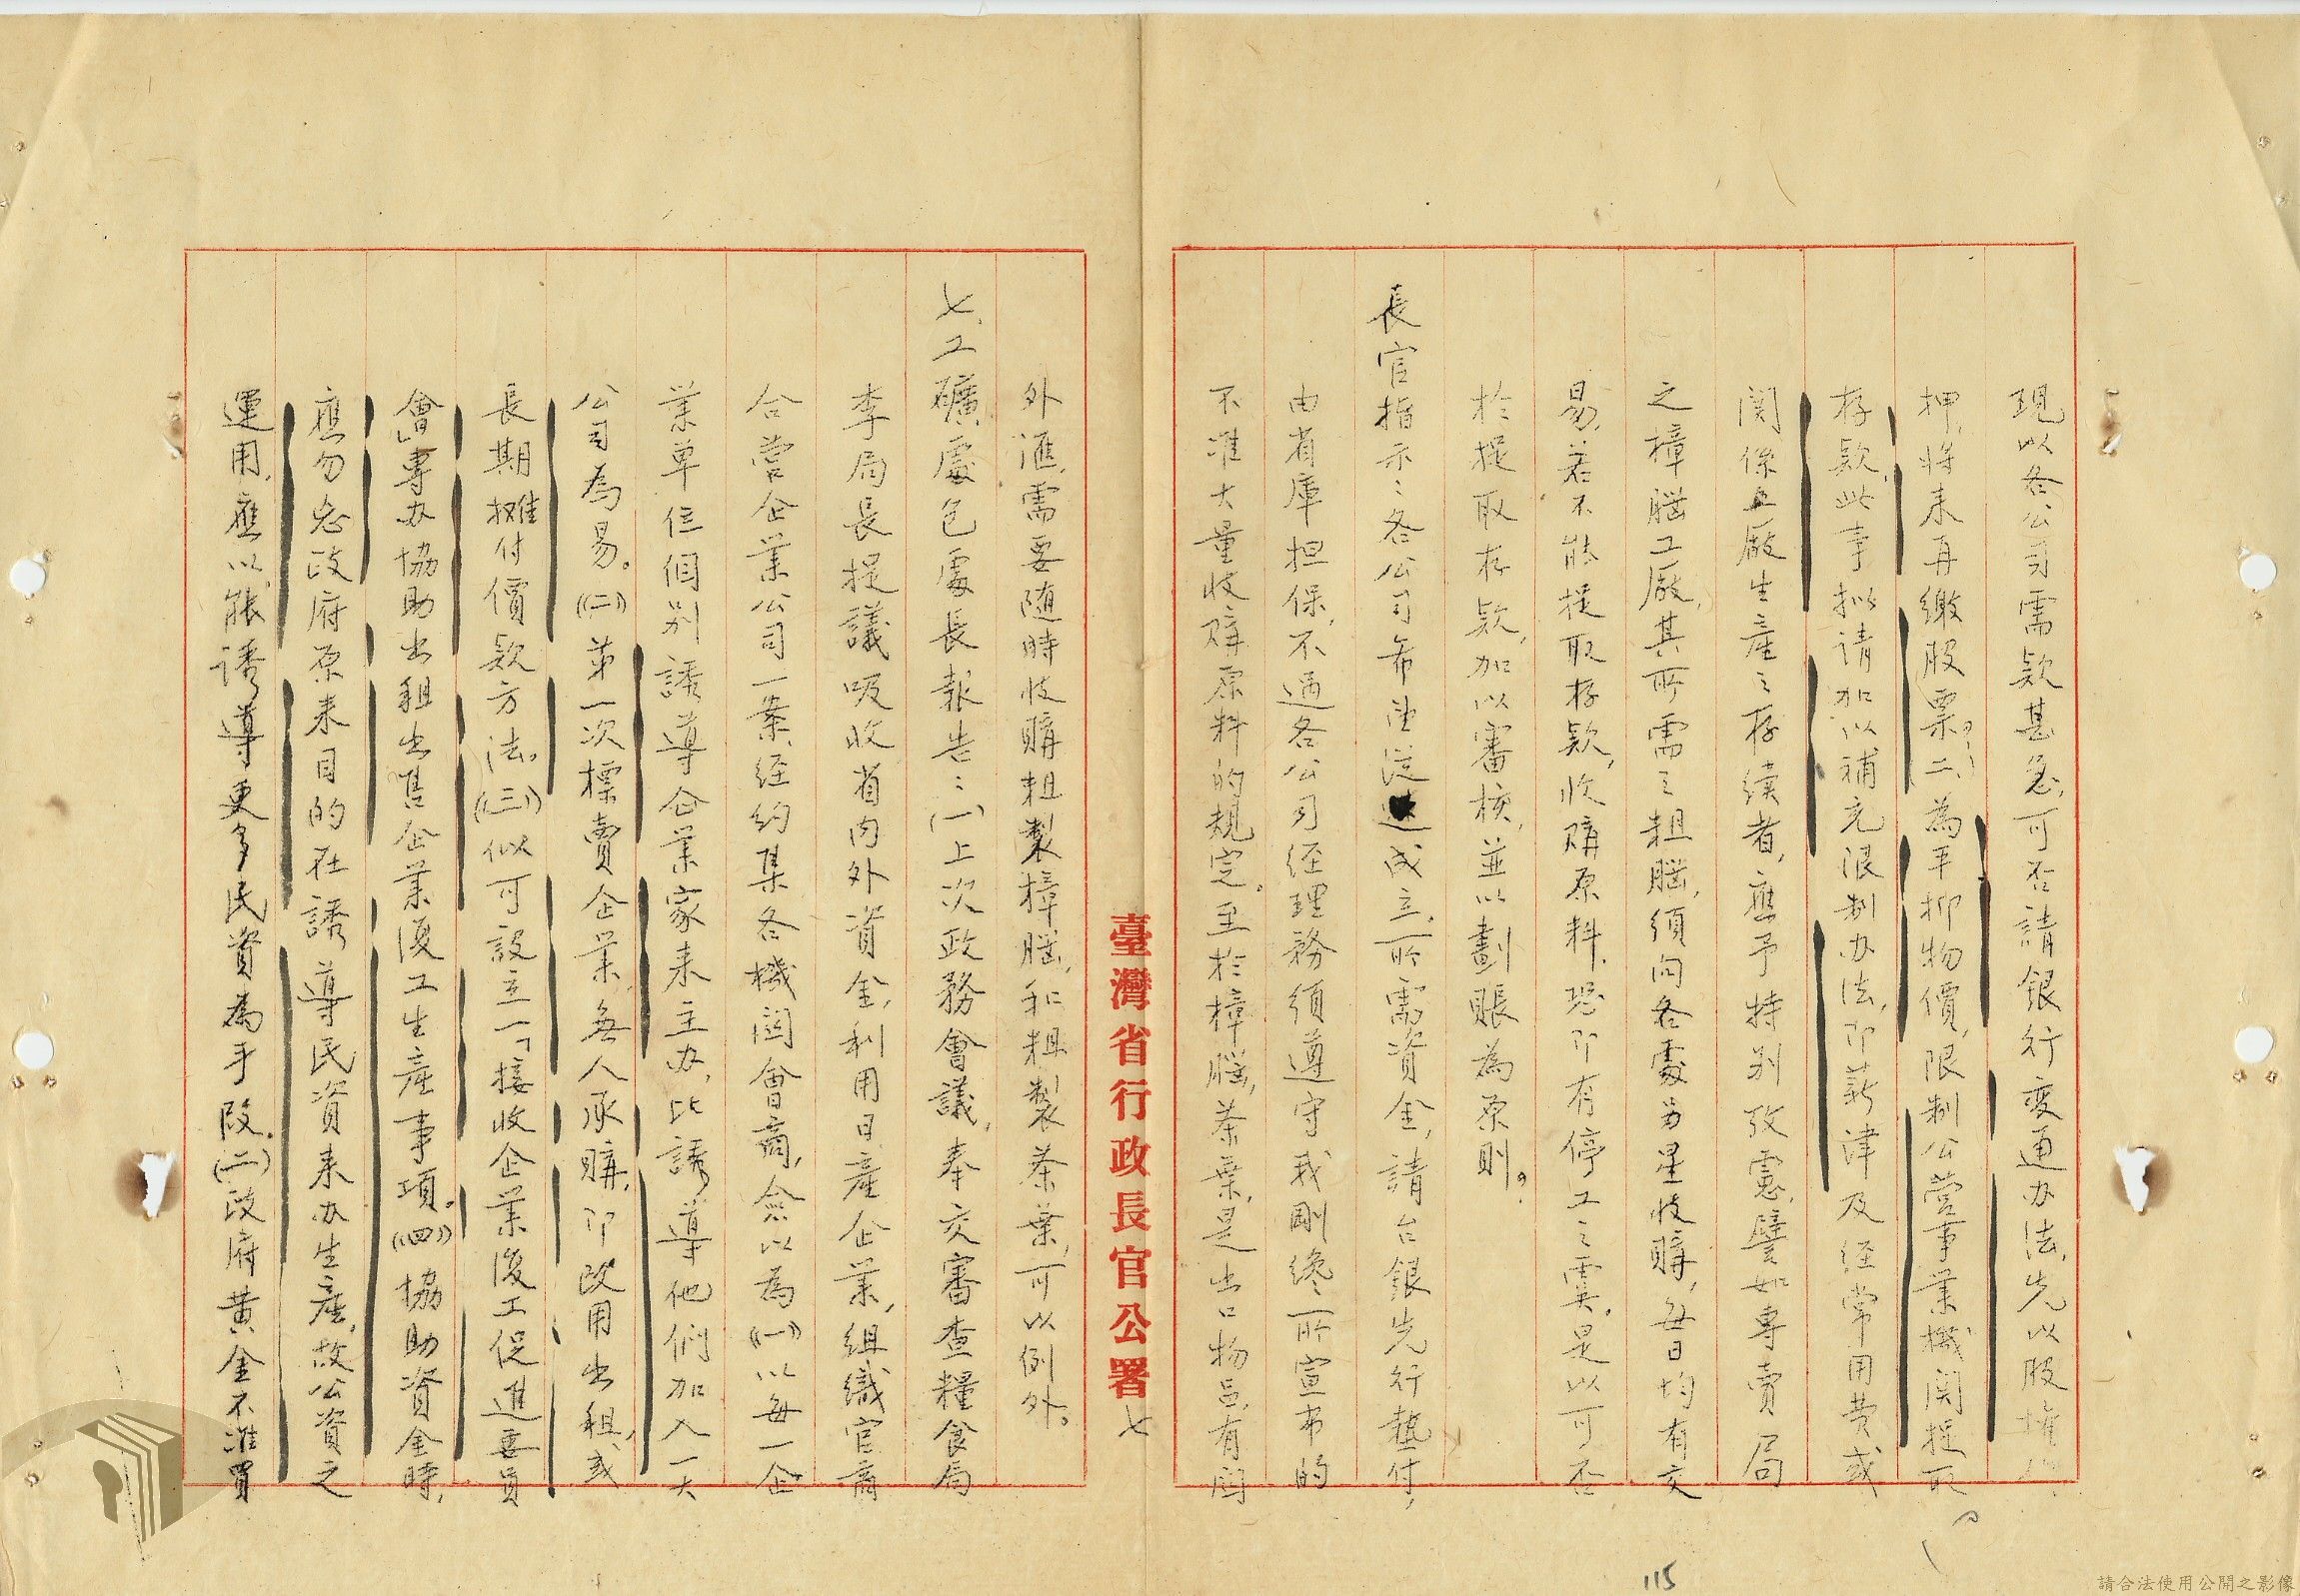 現以各公司需款甚急，可否請銀行变通办法，先以股權作
押，將来再繳股票。(二)為平抑物價，限制公营事業機関提取
存款，此事拟请加以補充限制办法，即薪津及经常用費或
関係工厰生產之存續者，應予特别攷慮，譬如專賣局
之樟脳工厰，其所需之粗脳，須向各處另星收購，每日均有交
易，若不能提取存款，收購原料，恐即有停工之虞。是以可否
於提取存款，加以審核，並以劃賬為原則。
長官指示：各公司希望從速成立，所需資金，請台銀先行墊付，
由省庫担保，不過各公司经理務須遵守我剛纔所宣布的
不准大量收購原料的規定。至於樟脳，茶葉，是出口物品，有関
臺灣省行政長官公署
七
外滙，需要随時收購粗製樟脳，和粗製茶葉，可以例外。
七、工礦處包處長報告：(一)上次政務會議，奉交審查糧食局
李局長提議吸收省内外資金，利用日產企業，組織官商
合营企業公司一案，经约集各機関會商，僉以為((一))以每一企
業单位個别誘導企業家来主办，比誘導他們加入一大
公司為易。((二))第一次標賣企業，無人承購，即改用出租，或
長期攤付價款方法。((三))似可設立「接收企業復工促進委員
會」專办協助出租出售企業復工生產事項。((四))協助資金時，
應勿忘政府原来目的在誘導民資来办生產，故公資之
運用，應以能誘導更多民資為手段。(二)政府黄金不准買
115
請合法使用公開之影像